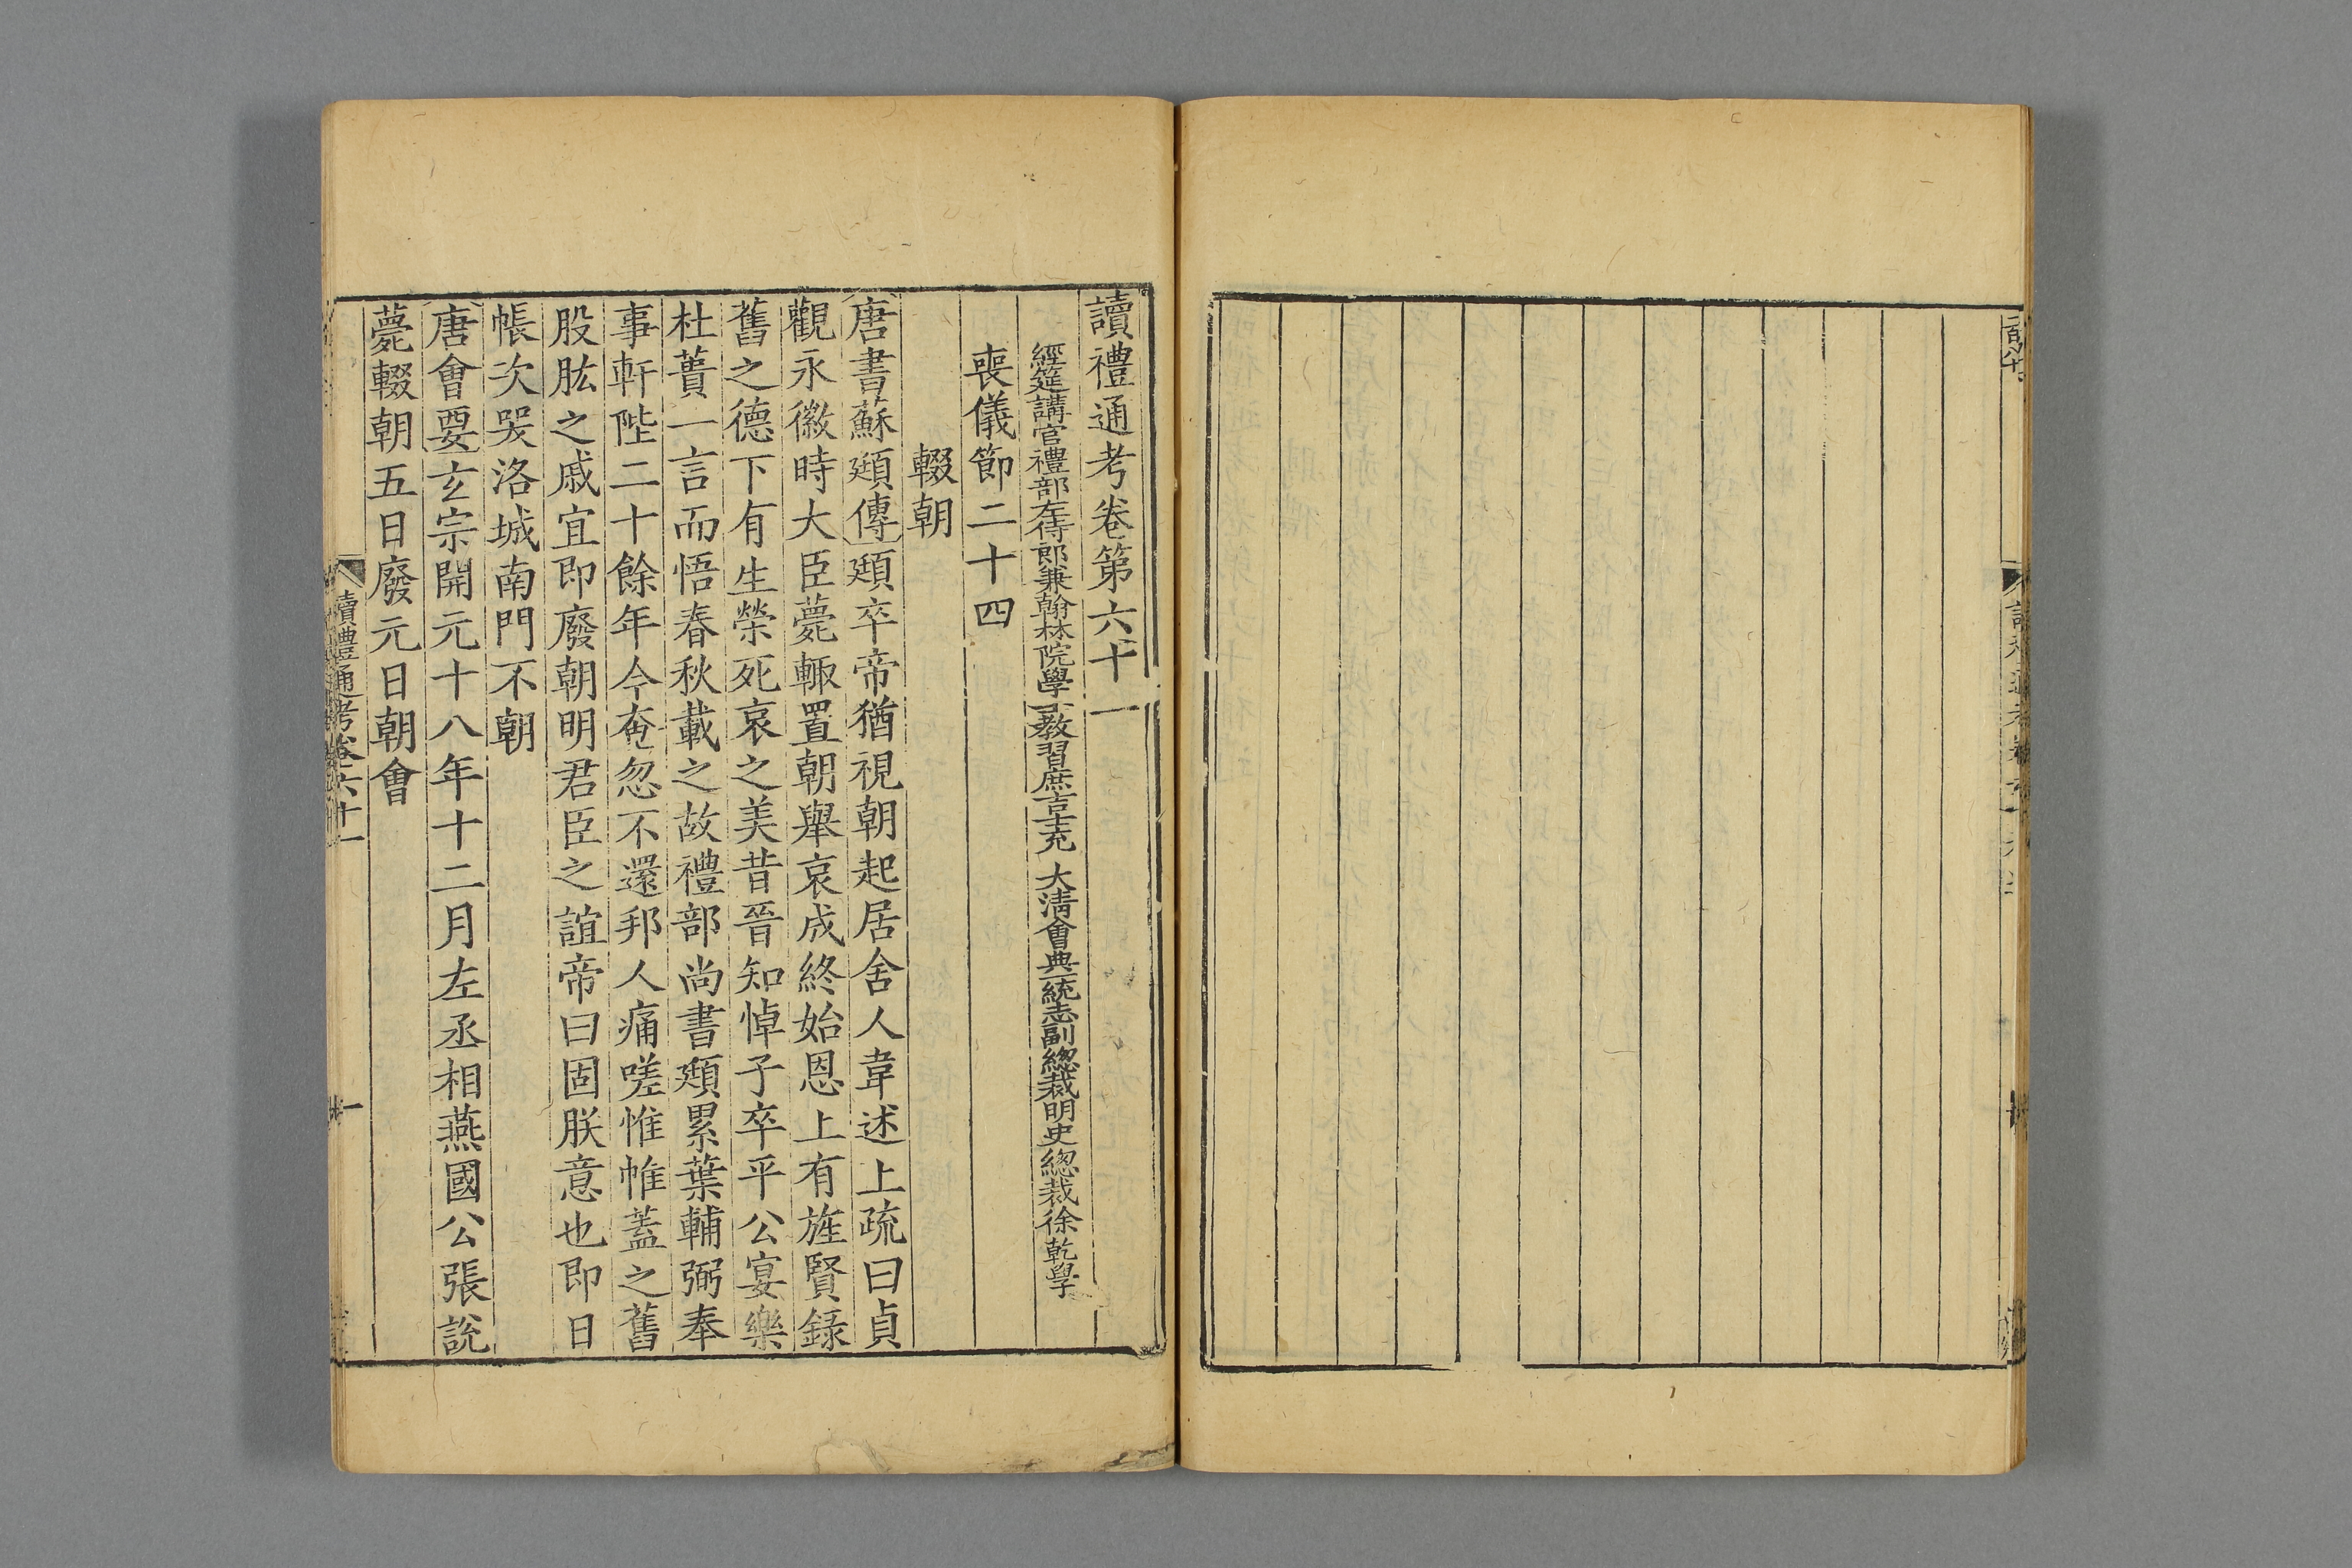 讀禮通考卷第六十一
經筵講官禮部左侍郎兼翰林院學士教習庶吉士充 大清會典一統志副總裁明史總裁徐乾學
喪儀節二十四
輟朝
唐書蘇頲傳頲卒帝猶視朝起居舍人韋述上疏曰貞
觀永徽時大臣薨輒置朝舉哀成終始恩上有旌賢錄
舊之德下有生榮死哀之美昔晉知悼子卒平公宴樂
杜蕢一言而悟春秋載之故禮部尚書頲累葉輔弼奉
事軒陛二十餘年今奄忽不還邦人痛嗟惟帷蓋之舊
股肱之戚宜即廢朝明君臣之誼帝曰固朕意也即日
帳次哭洛城南門不朝
唐會要玄宗開元十八年十二月左丞相燕國公張說
薨輟朝五日廢元日朝會
讀禮通考卷六十一
一